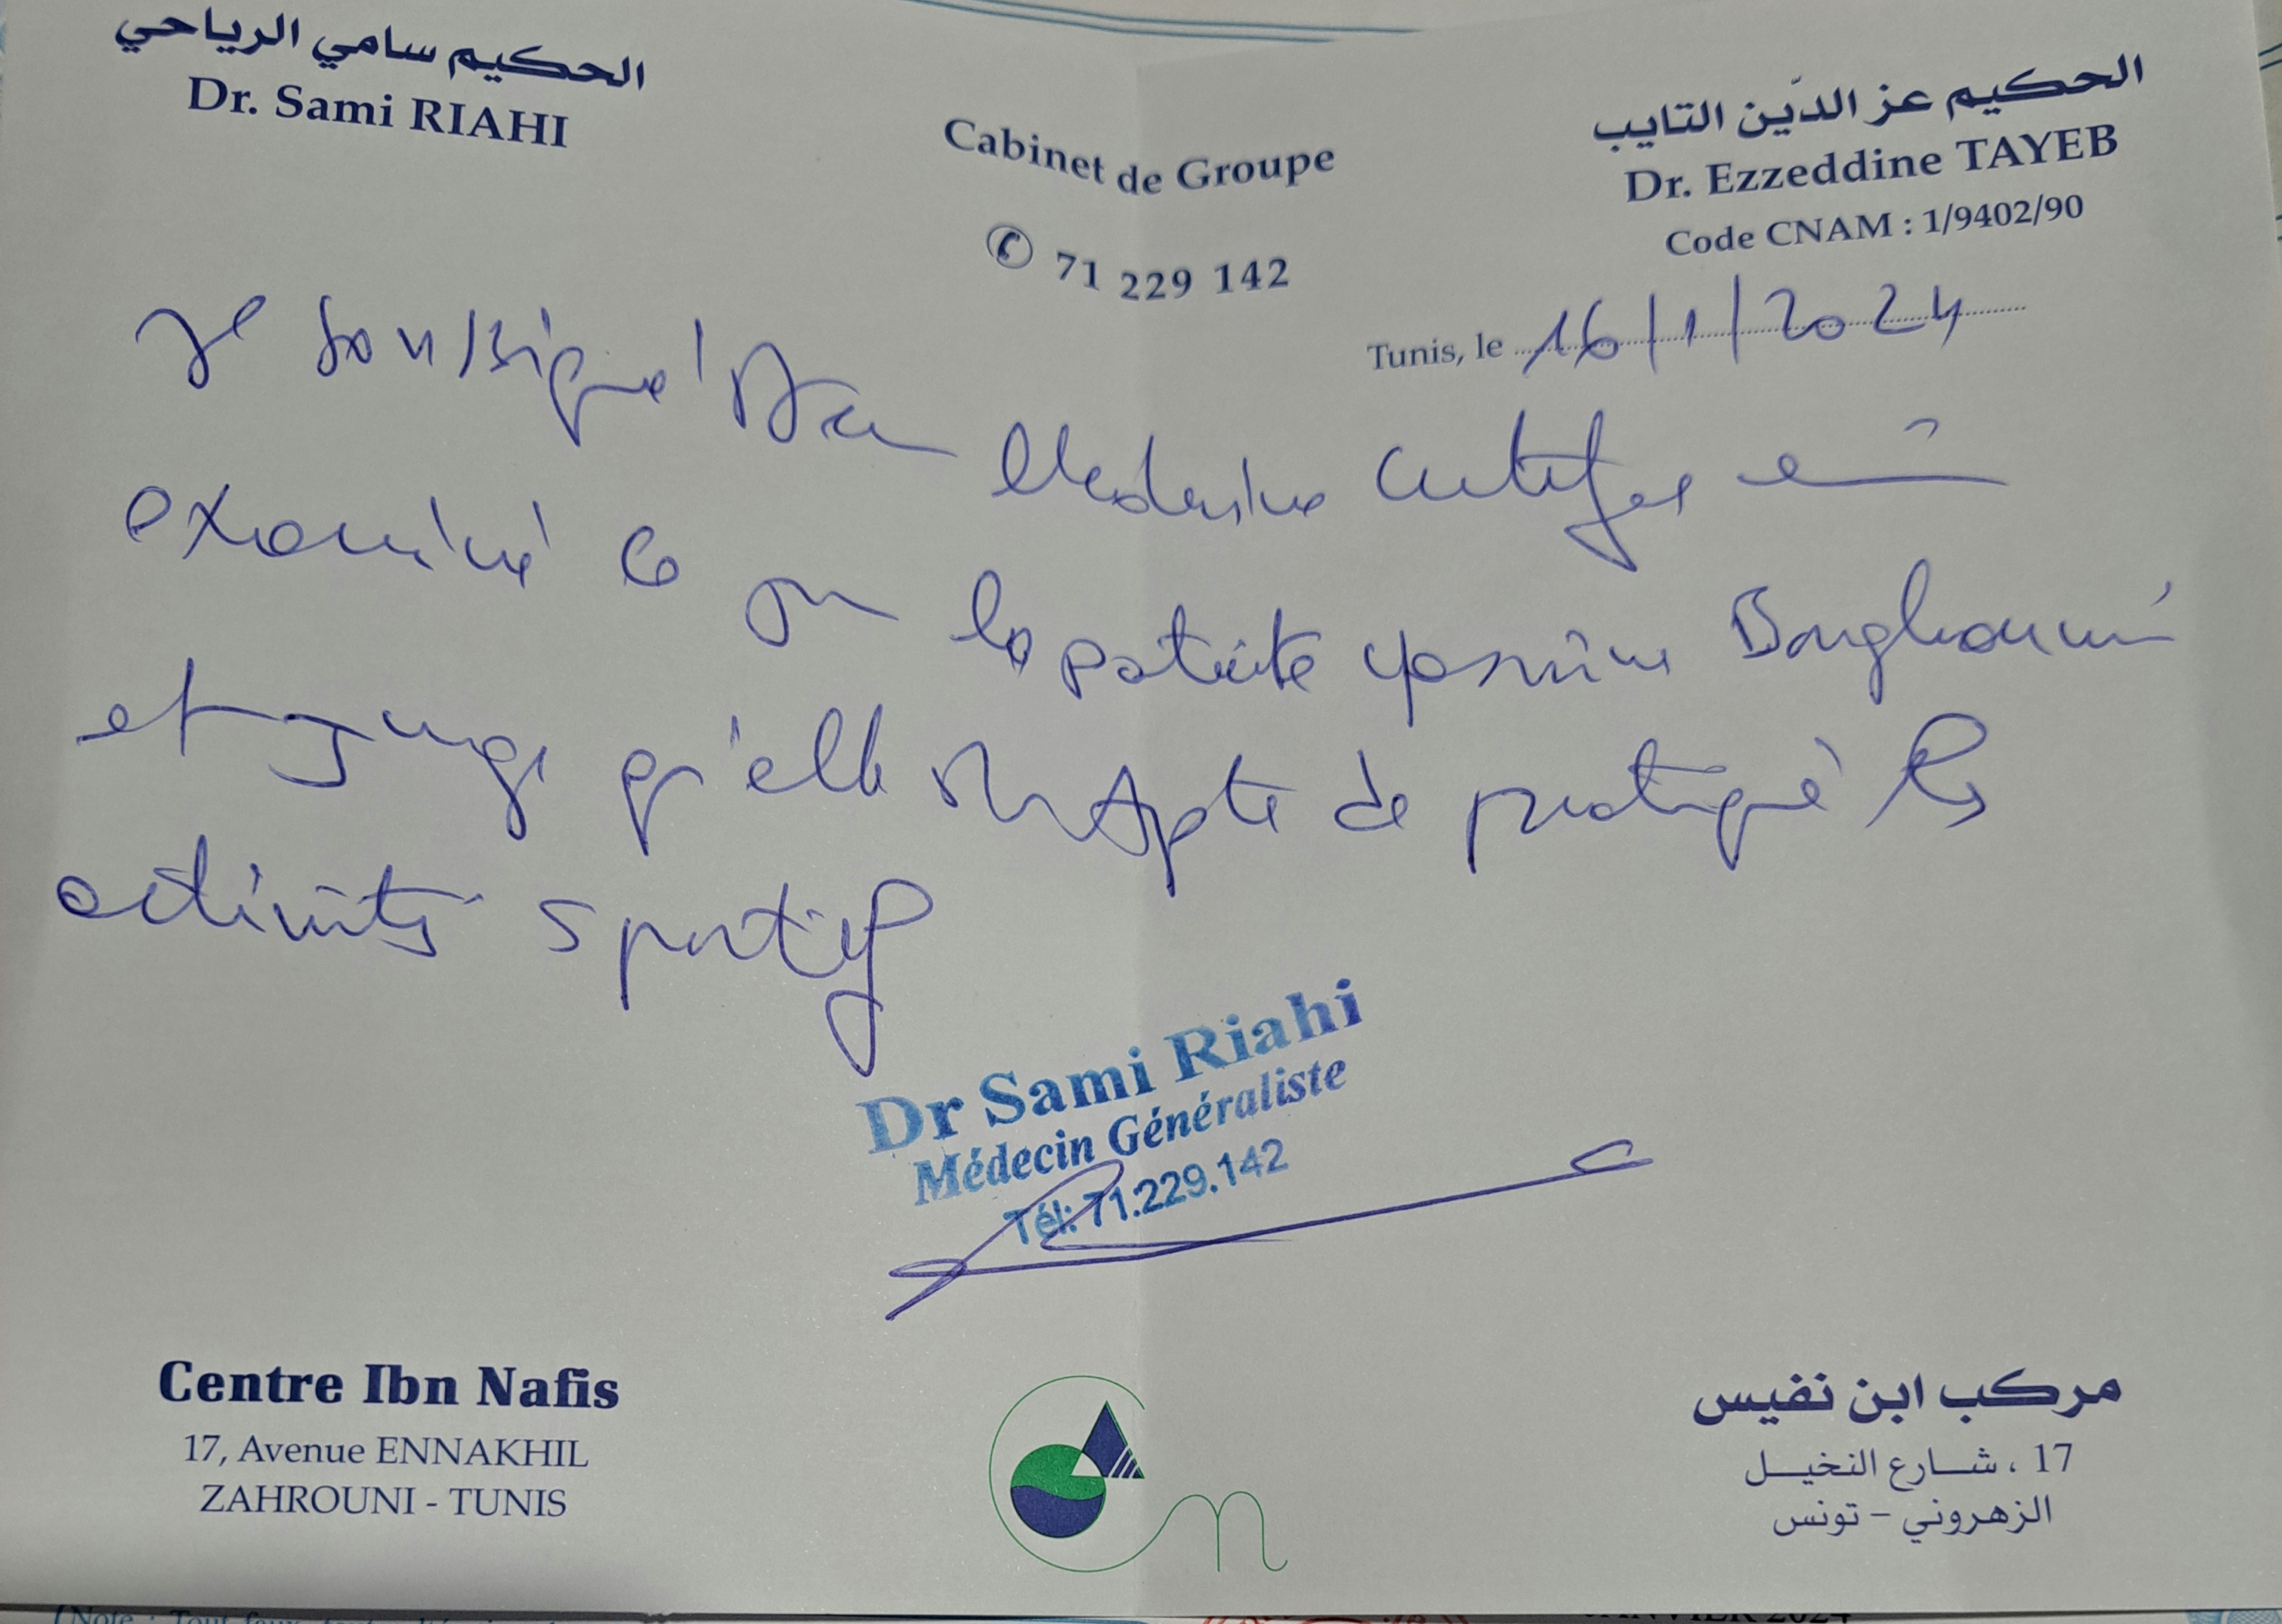 الحكيم سامي الرياحي
Dr. Sami RIAHI
Cabinet de Groupe
71 229 142
الحكيم عز الدّين التايب
Dr. Ezzeddine TAYEB
Code CNAM : 1/9402/90
Tunis, le 16/1/2024
Je soussigné Dr en Médecine certifie
examiné ce la patiente yasmine
et juge qu'elle est Apte de pratiqué les
activités sportif
Dr Sami Riahi
Médecin Généraliste
Tél: 71.229.142
Centre Ibn Nafis
17, Avenue ENNAKHIL
ZAHROUNI - TUNIS
مركب ابن نفيس
17 ، شارع النخيل
الزهروني - تونس